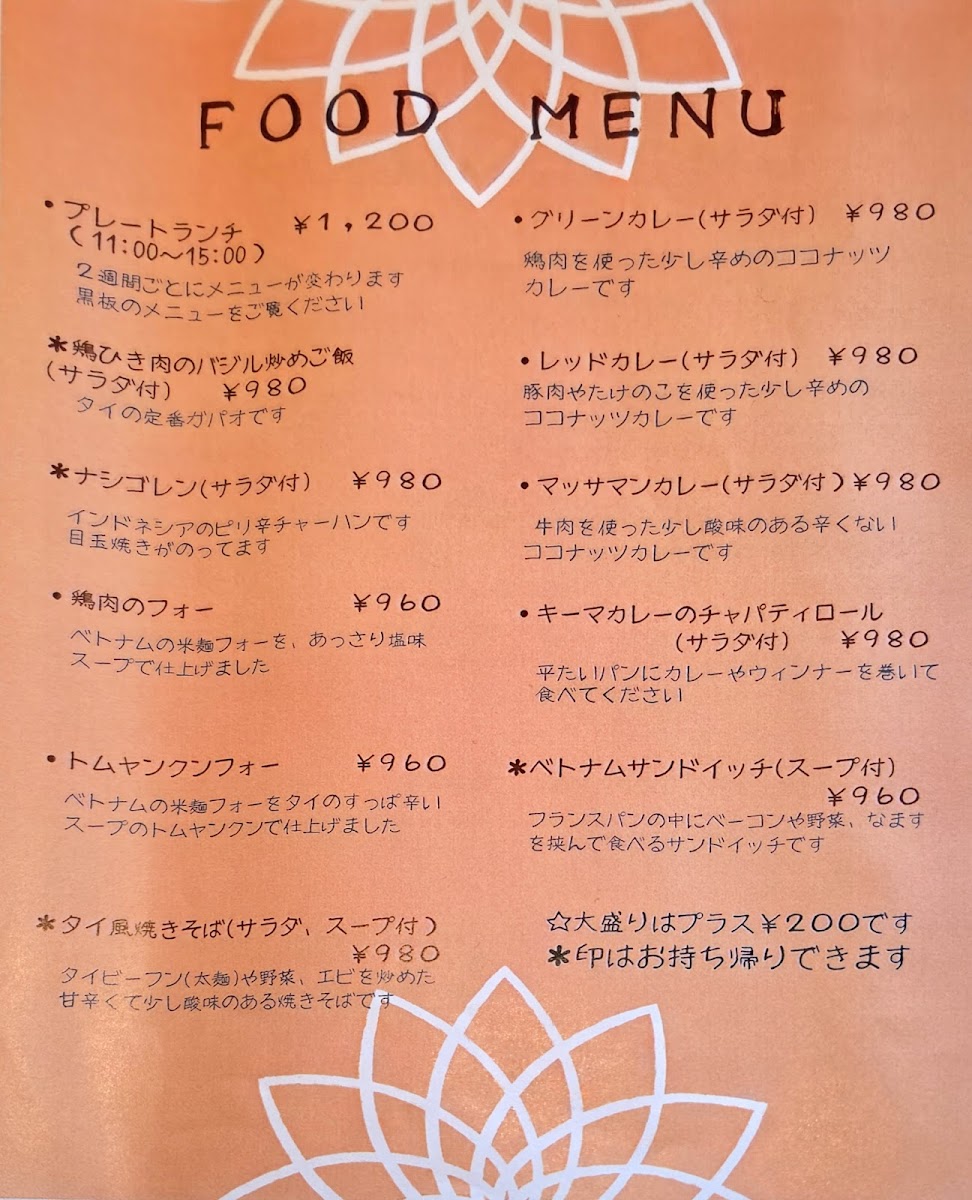 FOOD MENU
・プレートランチ ￥1,200
(11:00〜15:00)
2週間ごとにメニューが変わります
黒板のメニューをご覧ください
＊鶏ひき肉のバジル炒めご飯
(サラダ付) ￥980
タイの定番ガパオです
＊ナシゴレン(サラダ付) ￥980
インドネシアのピリ辛チャーハンです
目玉焼きがのってます
・鶏肉のフォー ￥960
ベトナムの米麺フォーを、あっさり塩味
スープで仕上げました
・トムヤンクンフォー ￥960
ベトナムの米麺フォーをタイのすっぱ辛い
スープのトムヤンクンで仕上げました
＊タイ風焼きそば(サラダ、スープ付)
￥980
タイビーフン(太麺)や野菜、エビを炒めた
甘辛くて少し酸味のある焼きそばです
・グリーンカレー(サラダ付) ￥980
鶏肉を使った少し辛めのココナッツ
カレーです
・レッドカレー(サラダ付) ￥980
豚肉やたけのこを使った少し辛めの
ココナッツカレーです
・マッサマンカレー(サラダ付)￥980
牛肉を使った少し酸味のある辛くない
ココナッツカレーです
・キーマカレーのチャパティロール
(サラダ付) ￥980
平たいパンにカレーやウィンナーを巻いて
食べてください
＊ベトナムサンドイッチ(スープ付)
￥960
フランスパンの中にベーコンや野菜、なます
を挟んで食べるサンドイッチです
☆大盛りはプラス￥200です
＊印はお持ち帰りできます